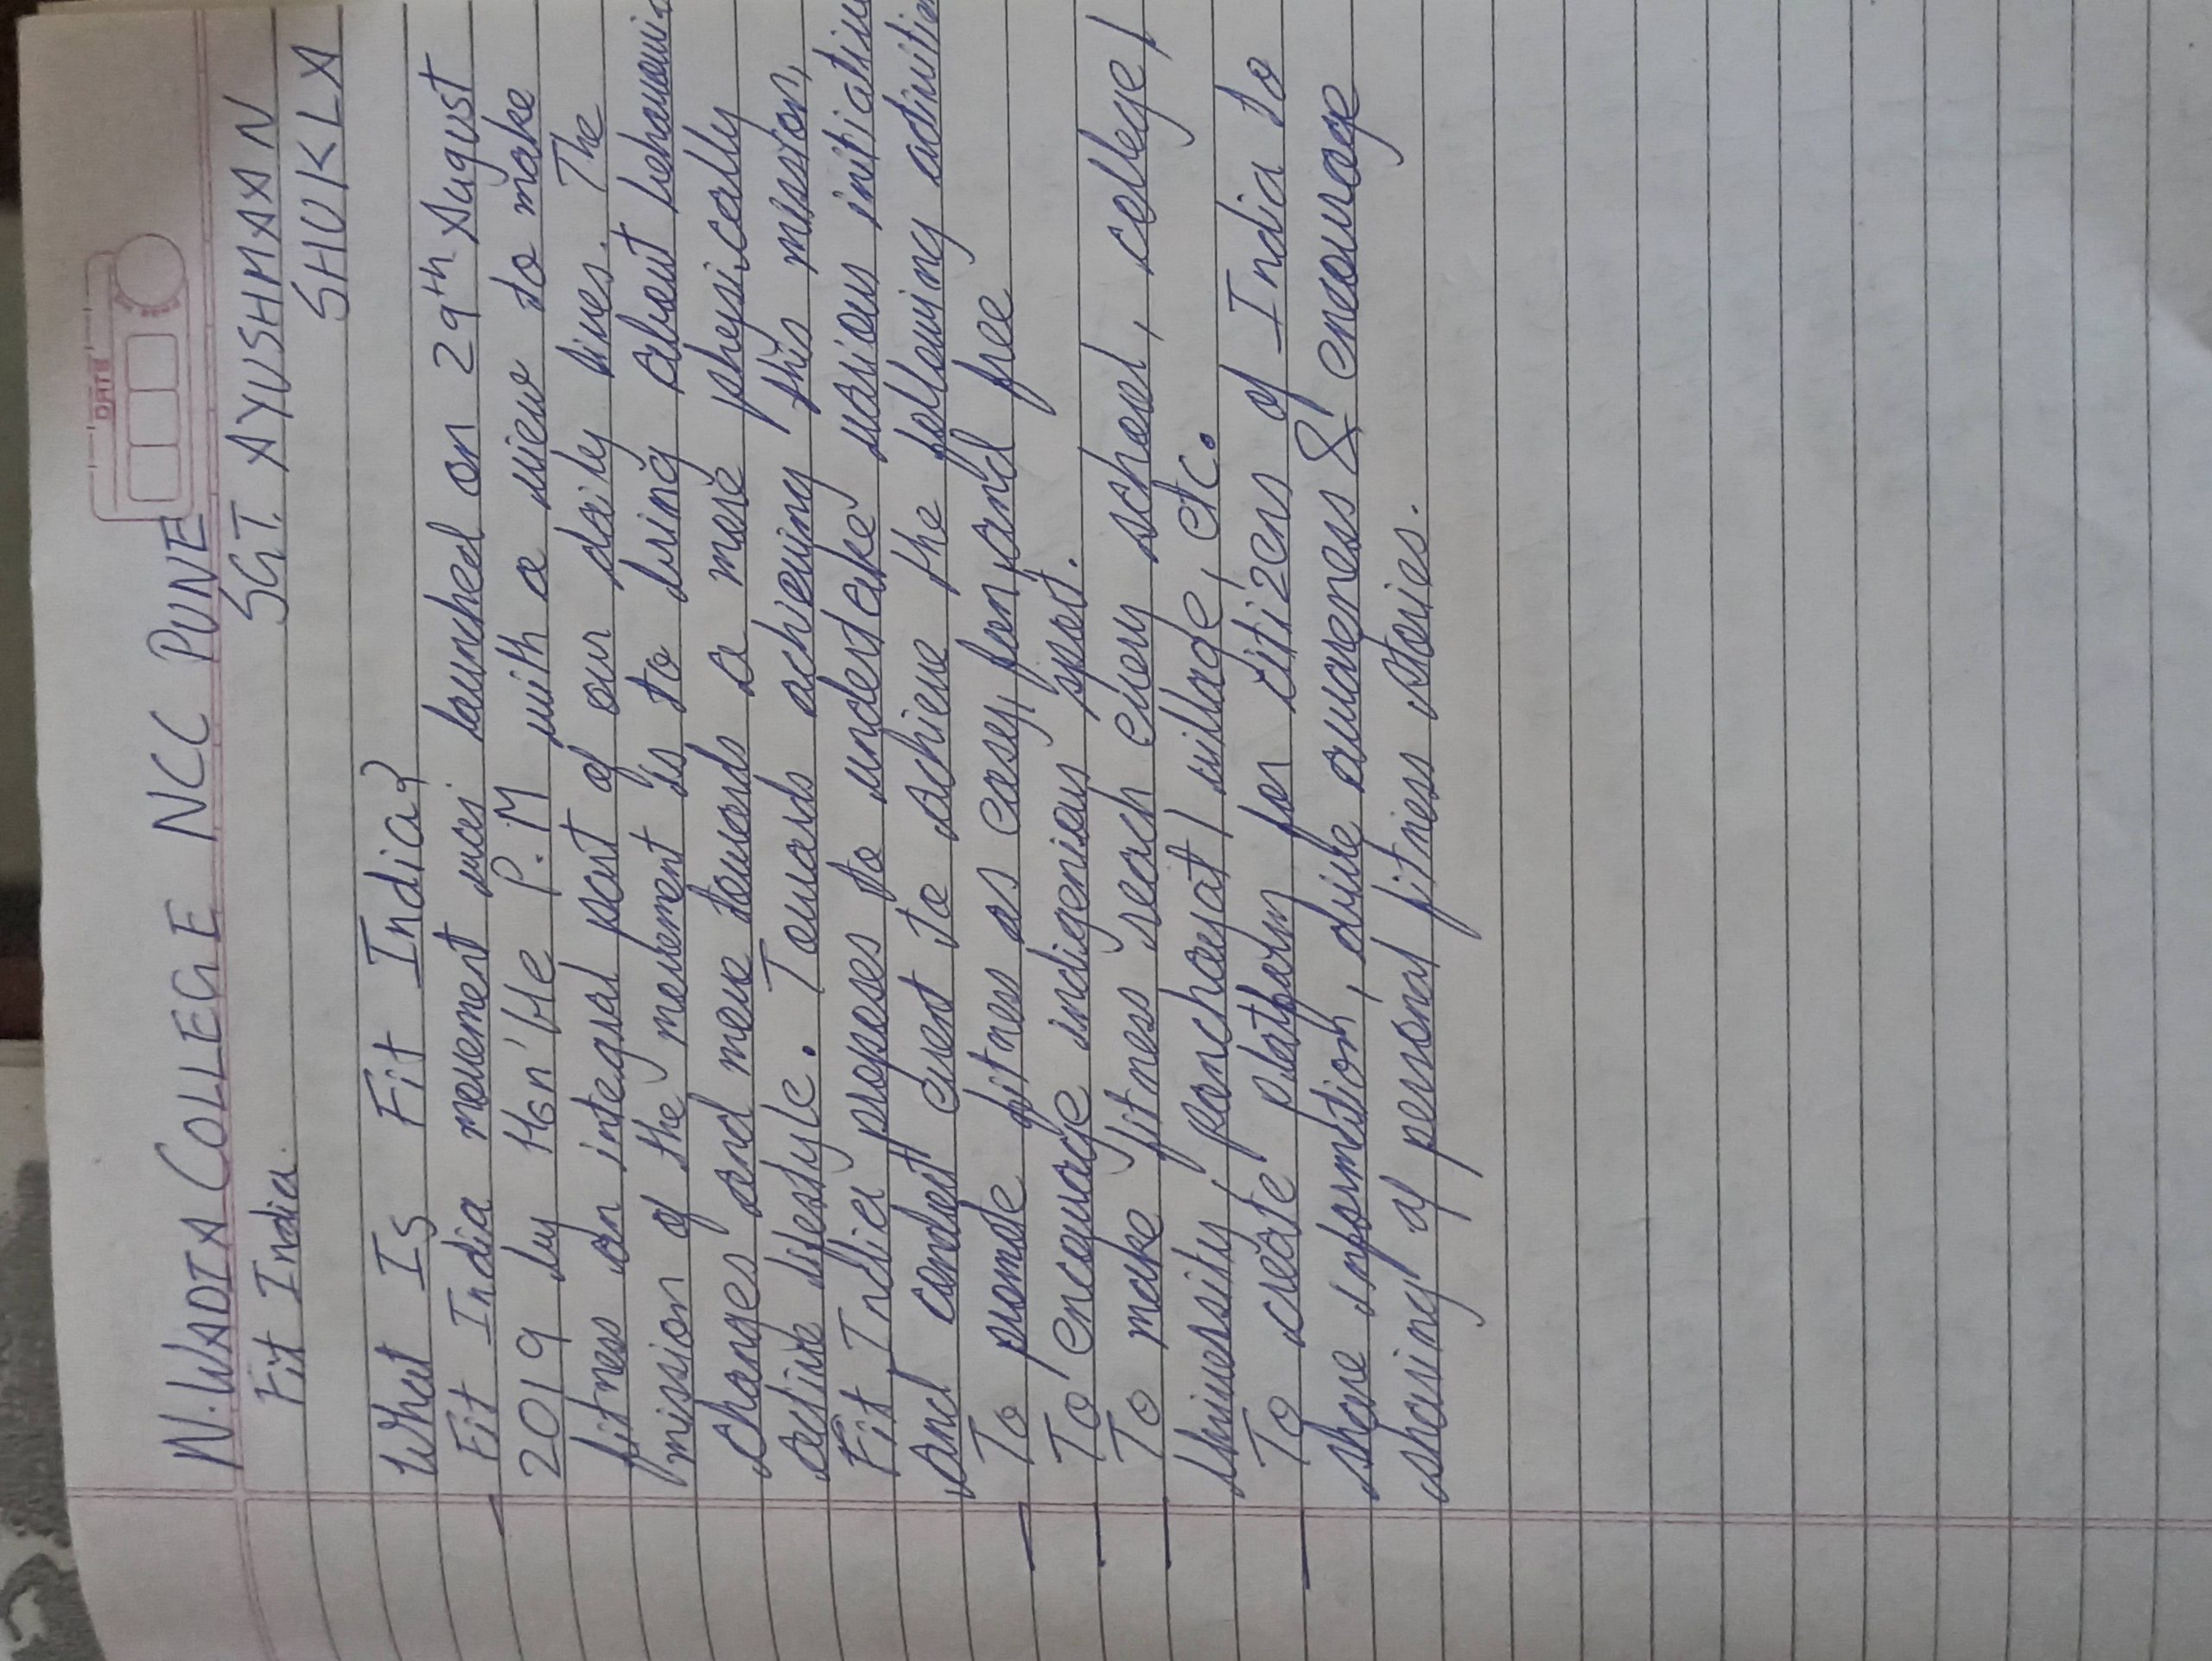 DATE
N. WADIA COLLEGE NCC PUNE
Fit India. SGT. AYUSHMAAN
SHUKLA
What Is Fit India?
Fit India movement was launched on 29th August
2019 by Hon'ble P.M with a view to make
fitness an integral part of our daily lives. The
mission of the movement is to bring about behaviou
changes and move towards a more physically
active lifestyle. Towards achieving this mission,
Fit India proposes to undertake various initiative
and conduct event to achieve the following activitie
To promote fitness as easy, fun and free
To encourage indigenious sport.
To make fitness reach every school, college /
University / panchayat / village, etc.
To create platform for citizens of India to
share information, drive awareness & encourage
sharing of personal fitness stories.